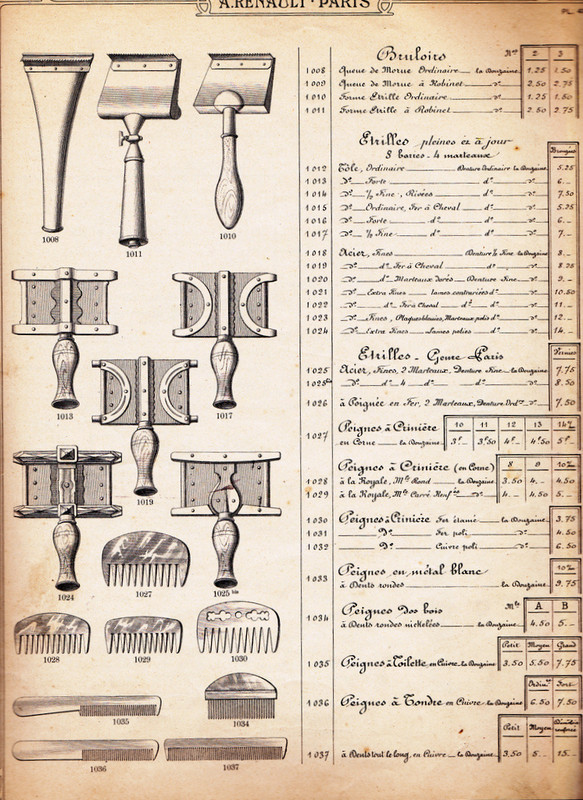 A. RENAULT · PARIS
PL. 4
Bruloirs Nos 2 3
1008 Queue de Morue Ordinaire la Douzaine 1.25 1.50
1009 Queue de Morue à Robinet d° 2.50 2.75
1010 Forme Etrille Ordinaire d° 1.25 1.50
1011 Forme Etrille à Robinet d° 2.50 2.75
Etrilles pleines et à jour
8 barres - 4 marteaux
1012 Tôle, Ordinaire Denture Ordinaire la Douzaine 5.25
1013 d° Forte d° d° 6._
1014 d° ½ Fine, Rivées d° d° 7.50
1015 d° Ordinaire, Fer à Cheval d° d° 5.25
1016 d° Forte d° d° d° 6._
1017 d° ½ Fine d° d° d° 7._
1018 Acier, Fines Denture ½ Fine la Douzaine 8._
1019 d° d° Fer à Cheval d° d° 8.75
1020 d° d° Marteaux dorés Denture Fine d° 9._
1021 d° Extra Fines lames contrariées d° d° 10.50
1022 d° d° Fer à Cheval d° d° 11._
1023 d° Fines, Marteaux polis d° d° 12._
1024 d° Extra Fines Lames polies d° d° 14._
Etrilles - Genre Paris
Vernies
1025 Acier, Fines, 2 Marteaux, Denture Fine la Douzaine 7.75
1025bis d° d° 4 d° d° d° 8.50
1026 à Poignée en Fer, 2 Marteaux, Denture Ord. d° 7.50
1027 Peignes à Crinière 10 11 12 13 14
en Corne la Douzaine 3f._ 3f.50 4f._ 4f.50 5f._
Peignes à Crinière (en Corne) 8 9 10
1028 à la Royale, Mle Rond la Douzaine 3.50 4._ 4.50
1029 à la Royale, Mle Carré Renf. d° 4._ 4.50 5._
1030 Peignes à Crinière Fer étamé la Douzaine 3.75
1031 d° Fer poli d° 4.50
1032 d° Cuivre poli d° 6.50
1033 Peignes en métal blanc
à Dents rondes la Douzaine 9.75
1034 Peignes Dos bois Mle A B
à Dents rondes nickelées la Douzaine 4.50 5._
Petit Moyen Grand
1035 Peignes à Toilette en Cuivre la Douzaine 3.50 5.50 7.75
Ordin. Fort
1036 Peignes à Tondre en Cuivre la Douzaine 6.50 7.50
Petit Moyen
1037 à Dents tout le long, en Cuivre la Douzaine 3.50 5._ 15._
1008
1011
1010
1013
1017
1019
1024
1027
1025 bis
1028
1029
1030
1035
1034
1036
1037